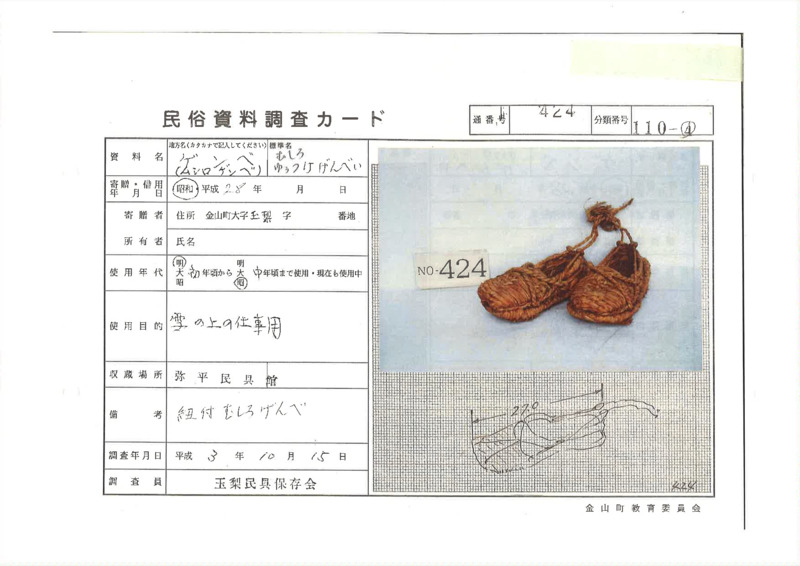 民俗資料調査カード
通番号 424 分類番号 110-④
資料名 地方名(カタカナで記入してください) ゲンベ (ムシロゲンベ) 標準名 むしろ ゆつつけげんべい
寄贈・借用年月日 昭和・平成 28年 月 日
寄贈者 住所 金山町大字玉梨 字 番地
所有者 氏名
使用年代 明 大 昭 初年頃から 明 大 昭 中年頃まで使用・現在も使用中
使用目的 雪の上の仕事用
収蔵場所 弥平民具館
備考 紐付むしろげんべ
調査年月日 平成 3年 10月 15日
調査員 玉梨民具保存会
NO-424
27.0
424
金山町教育委員会